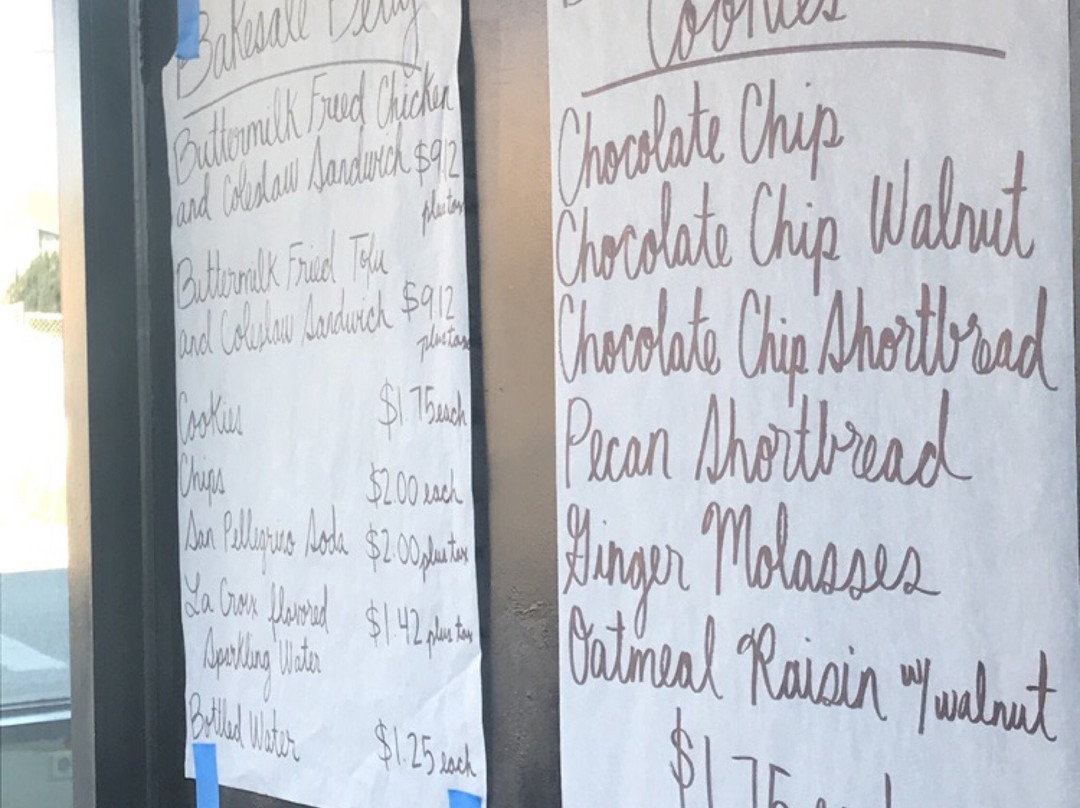 Bakesale Betty
Buttermilk Fried Chicken
and Coleslaw Sandwich $9.12
plus tax
Buttermilk Fried Tofu
and Coleslaw Sandwich $9.12
plus tax
Cookies $1.75 each
Chips $2.00 each
San Pellegrino Soda $2.00 plus tax
La Croix flavored $1.42 plus tax
Sparkling Water
Bottled Water $1.25 each
Cookies
Chocolate Chip
Chocolate Chip Walnut
Chocolate Chip Shortbread
Pecan Shortbread
Ginger Molasses
Oatmeal Raisin w/ walnut
$1.75 each